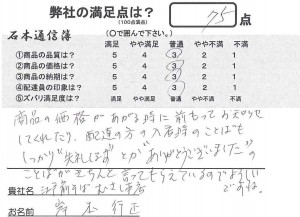 弊社の満足点は？ 75 点
(100点満点)
石本通信簿 (○で囲んで下さい。)
満足 やや満足 普通 やや不満 不満
①商品の品質は？ 5 4 3 2 1
②商品の価格は？ 5 4 3 2 1
③商品の納期は？ 5 4 3 2 1
④配達員の印象は？ 5 4 3 2 1
⑤ズバリ満足度は？ 満足 やや満足 普通 やや不満 不満
商品の価格があがる時に前もってお知らせ
してくれたり、配達の方の入店時のことばも
しっかり"失礼します"とか"ありがとうございました"の
ことばがきちんと言ってもらえているのでよろしい
ですね。
貴社名 江戸前そば むさし
お名前 岸本 行正